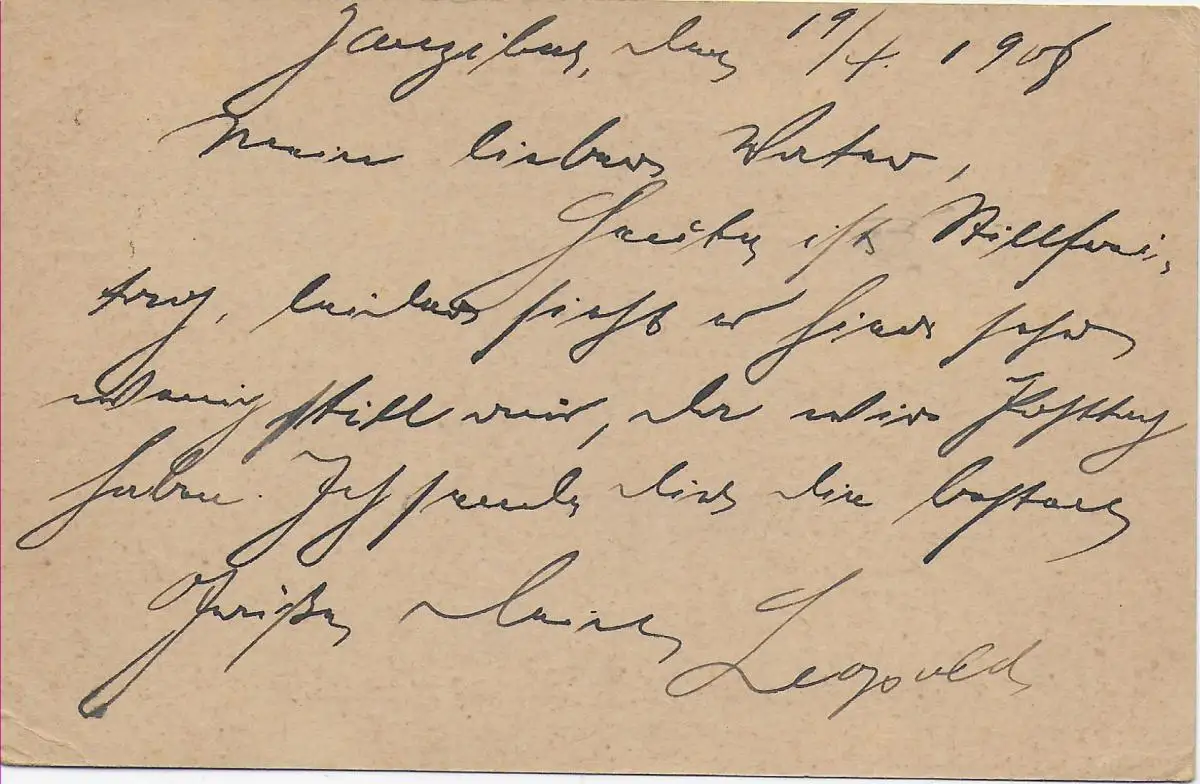 Zanzibar, den 19/4. 1908
Mein lieber Vater,
Heute ist Stillfrei-
tag, leider sieht er hier sehr
wenig still aus, da wir Posttag
haben. Ich sende dir die besten
Grüße Dein Leopold